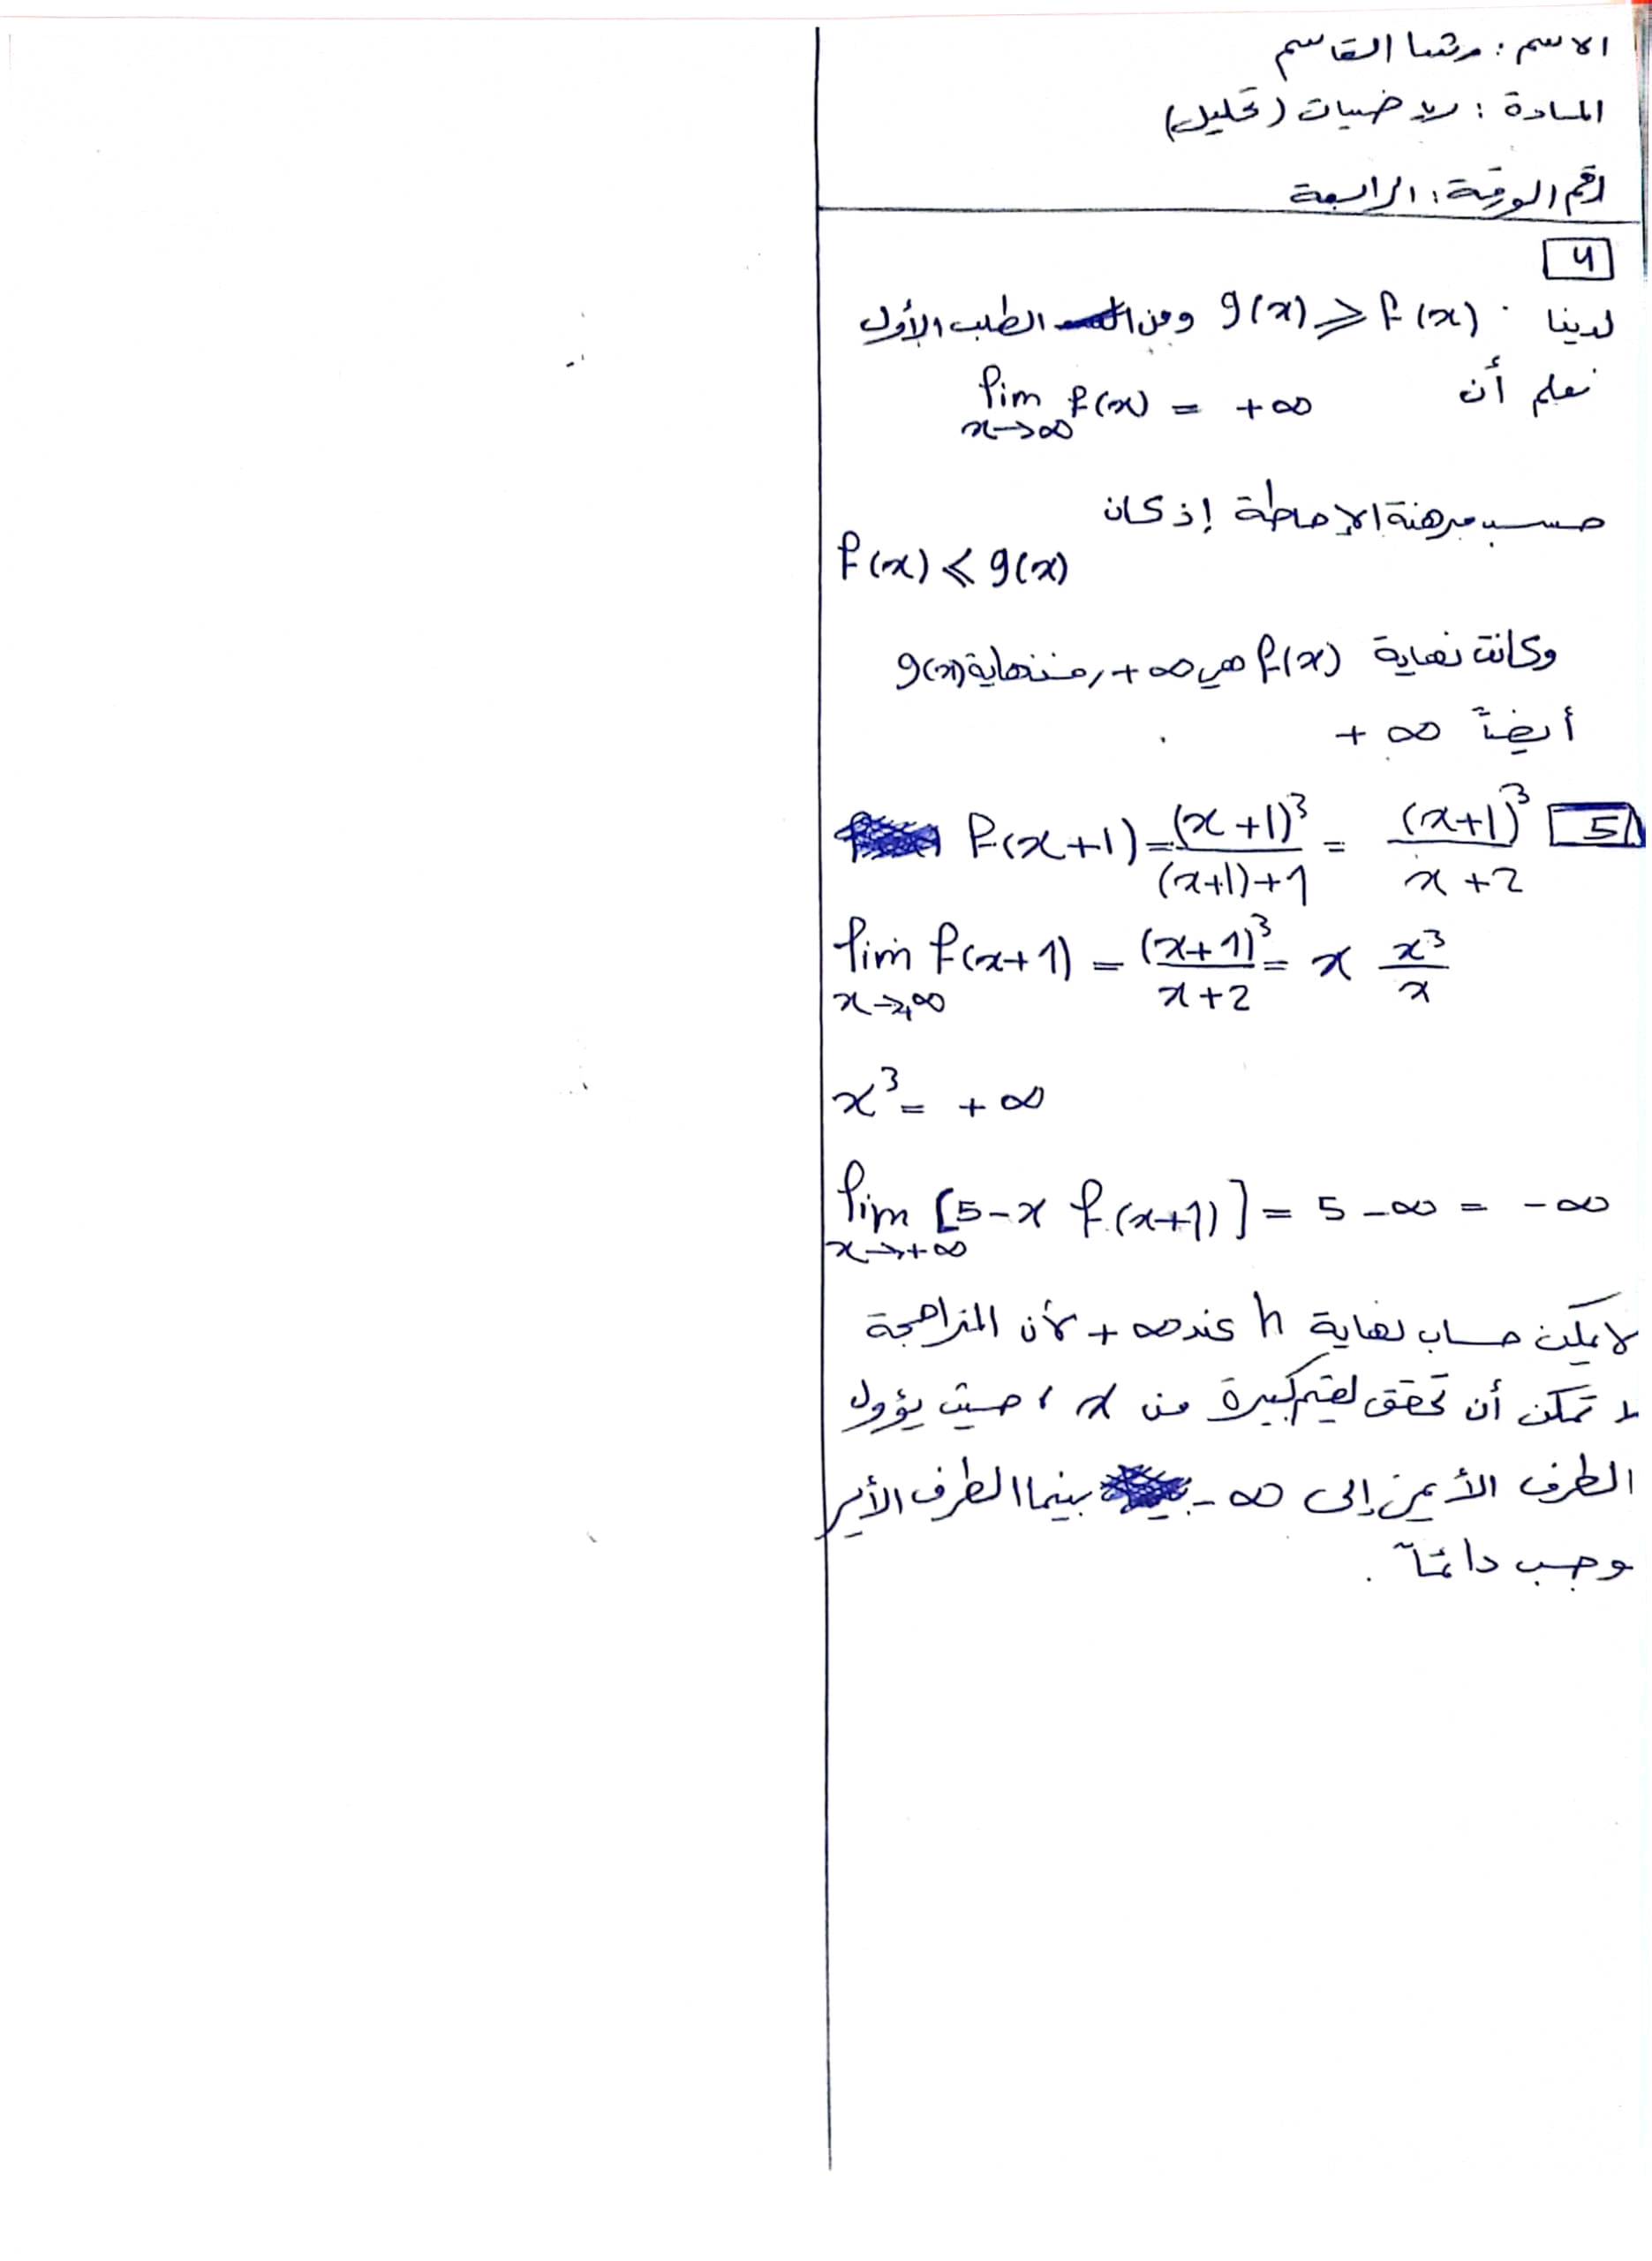 الاسم : رشا القاسم
المادة : رياضيات (تحليل)
رقم الورقة : الرابعة
4
لدينا g(x) ⩾ f(x) ومن الطلب الأول
نعلم أن lim f(x) = +∞
x→∞
حسب مبرهنة الإحاطة إذ كان
f(x) ⩽ g(x)
وكانت نهاية f(x) هي +∞, فنهاية g(x)
أيضاً +∞
5
f(x+1) = (x+1)³/((x+1)+1) = (x+1)³/(x+2)
lim f(x+1) = (x+1)³/(x+2) = x x³/x
x→+∞
x³ = +∞
lim [5-x f(x+1)] = 5-∞ = -∞
x→+∞
لا يمكن حساب نهاية h عند +∞ لأن المتراجحة
لا تمكن أن تحقق لقيم كبيرة من x ، حيث يؤول
الطرف الأيمن إلى -∞ بينما الطرف الأيسر
موجب دائماً .